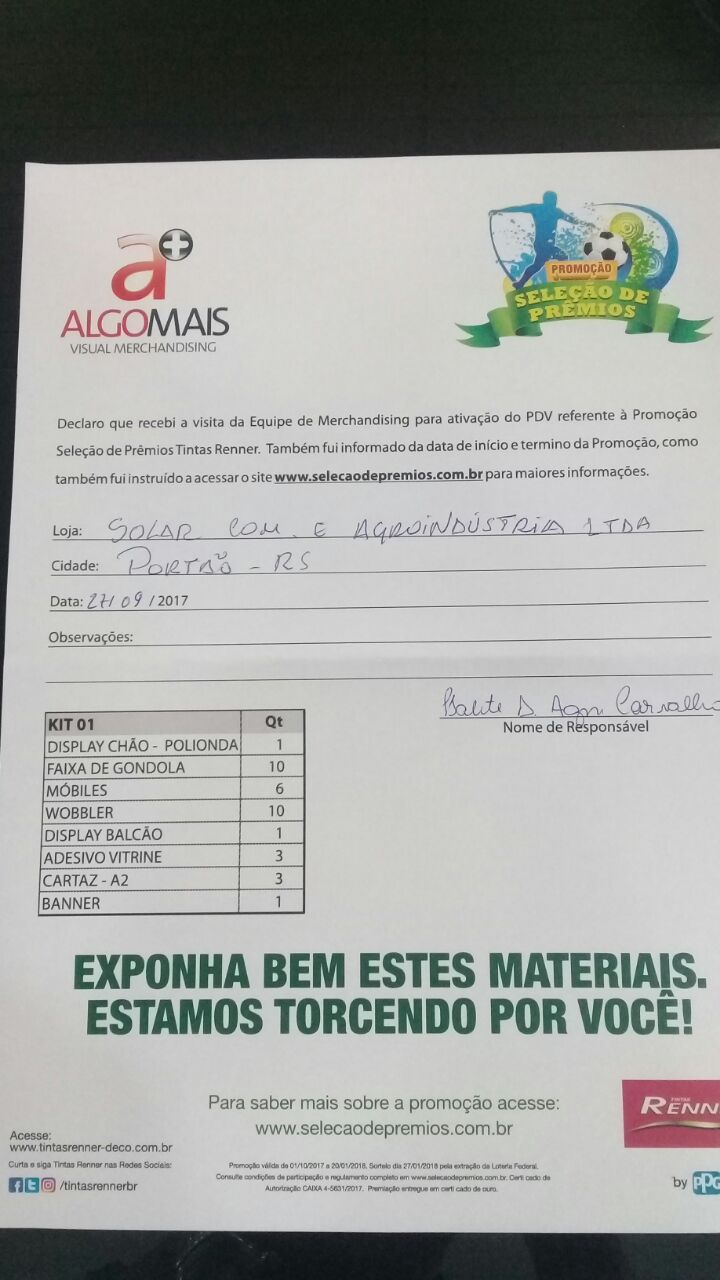 a+
ALGOMAIS
VISUAL MERCHANDISING
PROMOÇÃO
SELEÇÃO DE
PRÊMIOS
Declaro que recebi a visita da Equipe de Merchandising para ativação do PDV referente à Promoção
Seleção de Prêmios Tintas Renner. Também fui informado da data de início e termino da Promoção, como
também fui instruído a acessar o site www.selecaodepremios.com.br para maiores informações.
Loja: SOLAR COM. E AGROINDÚSTRIA LTDA
Cidade: PORTÃO - RS
Data: 27/09/2017
Observações:
Carvalho
Nome de Responsável
KIT 01 Qt
DISPLAY CHÃO - POLIONDA 1
FAIXA DE GONDOLA 10
MÓBILES 6
WOBBLER 10
DISPLAY BALCÃO 1
ADESIVO VITRINE 3
CARTAZ - A2 3
BANNER 1
EXPONHA BEM ESTES MATERIAIS.
ESTAMOS TORCENDO POR VOCÊ!
Para saber mais sobre a promoção acesse:
www.selecaodepremios.com.br
TINTAS
RENN
Acesse:
www.tintasrenner-deco.com.br
Curta e siga Tintas Renner nas Redes Sociais:
/tintasrennerbr
Promoção válida de 01/10/2017 a 20/01/2018. Sorteio dia 27/01/2018 pela extração da Loteria Federal.
Consulte condições de participação e regulamento completo em www.selecaodepremios.com.br. Certi cado de
Autorização CAIXA 4-5631/2017. Premiação entregue em certi cado de ouro.
by PPG